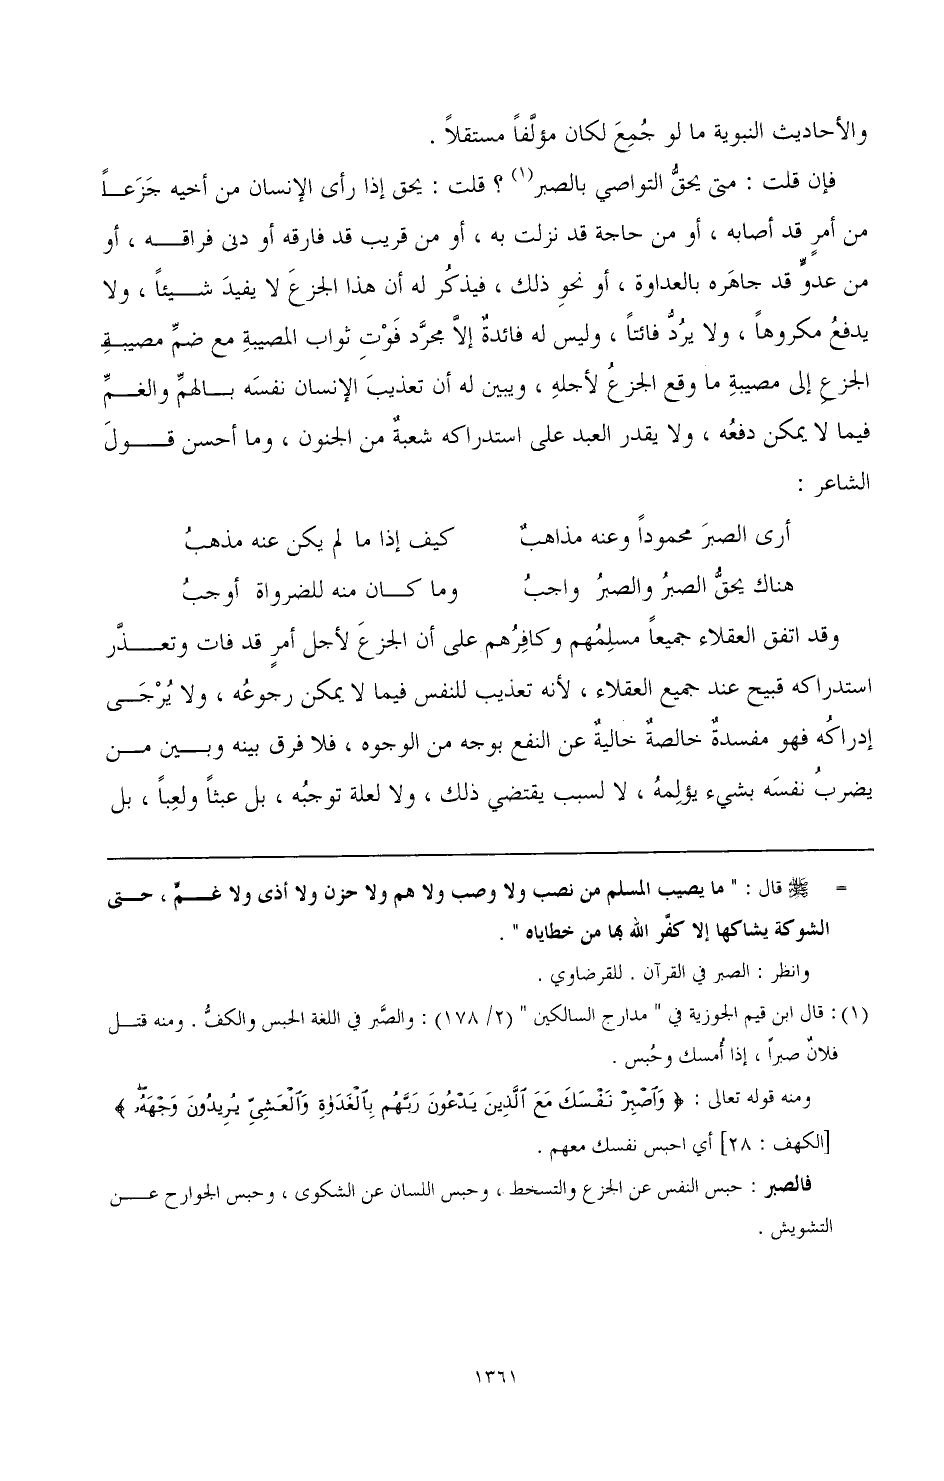 والأحاديث النبوية ما لو جُمِعَ لكان مؤلَّفاً مستقلاً .
فإن قلت : متى يحقُّ التواصي بالصبر(١) ؟ قلت : يحق إذا رأى الإنسان من أخيه جَزَعاً
من أمرٍ قد أصابه ، أو من حاجة قد نزلت به ، أو من قريب قد فارقه أو دنى فراقه ، أو
من عدوٍّ قد جاهَره بالعداوة ، أو نحوِ ذلك ، فيذكُر له أن هذا الجزعَ لا يفيدَ شيئاً ، ولا
يدفعُ مكروهاً ، ولا يرُدُّ فائتاً ، وليس له فائدةٌ إلاَّ مجرَّد فَوْتِ ثواب المصيبةِ مع ضمِّ مصيبةِ
الجزعِ إلى مصيبةِ ما وقع الجزعُ لأجلهِ ، ويبين له أن تعذيبَ الإنسان نفسَه بالهمِّ والغمِّ
فيما لا يمكن دفعُه ، ولا يقدر العبد على استدراكه شعبةٌ من الجنون ، وما أحسن قولَ
الشاعر :
أرى الصبرَ محموداً وعنه مذاهبٌ كيف إذا ما لم يكن عنه مذهبُ
هناك يحقُّ الصبرُ والصبرُ واجبُ وما كان منه للضرواة أوجبُ
وقد اتفق العقلاء جميعاً مسلِمُهم وكافِرُهم على أن الجزعَ لأجل أمرٍ قد فات وتعذَّر
استدراكه قبيح عند جميع العقلاء ، لأنه تعذيب للنفس فيما لا يمكن رجوعُه ، ولا يُرْجَى
إدراكُه فهو مفسدةٌ خالصةٌ خاليةٌ عن النفع بوجه من الوجوه ، فلا فرق بينه وبين من
يضربُ نفسَه بشيء يؤلِمهُ ، لا لسبب يقتضي ذلك ، ولا لعلة توجبُه ، بل عبثاً ولعِباً ، بل
= ﷺ قال : " ما يصيب المسلم من نصب ولا وصب ولا هم ولا حزن ولا أذى ولا غمٍّ ، حتى
الشوكة يشاكها إلا كفَّر الله بها من خطاياه " .
وانظر : الصبر في القرآن . للقرضاوي .
(١) : قال ابن قيم الجوزية في " مدارج السالكين " (٢/ ١٧٨) : والصَّبر في اللغة الحبس والكفُّ . ومنه قتل
فلانٌ صبراً ، إذا أُمسك وحُبس .
ومنه قوله تعالى : ﴿ وَٱصْبِرْ نَفْسَكَ مَعَ ٱلَّذِينَ يَدْعُونَ رَبَّهُم بِٱلْغَدَوٰةِ وَٱلْعَشِيِّ يُرِيدُونَ وَجْهَهُۥ ﴾
[الكهف : ٢٨] أي احبس نفسك معهم .
فالصبر : حبس النفس عن الجزع والتسخط ، وحبس اللسان عن الشكوى ، وحبس الجوارح عن
التشويش .
١٣٦١